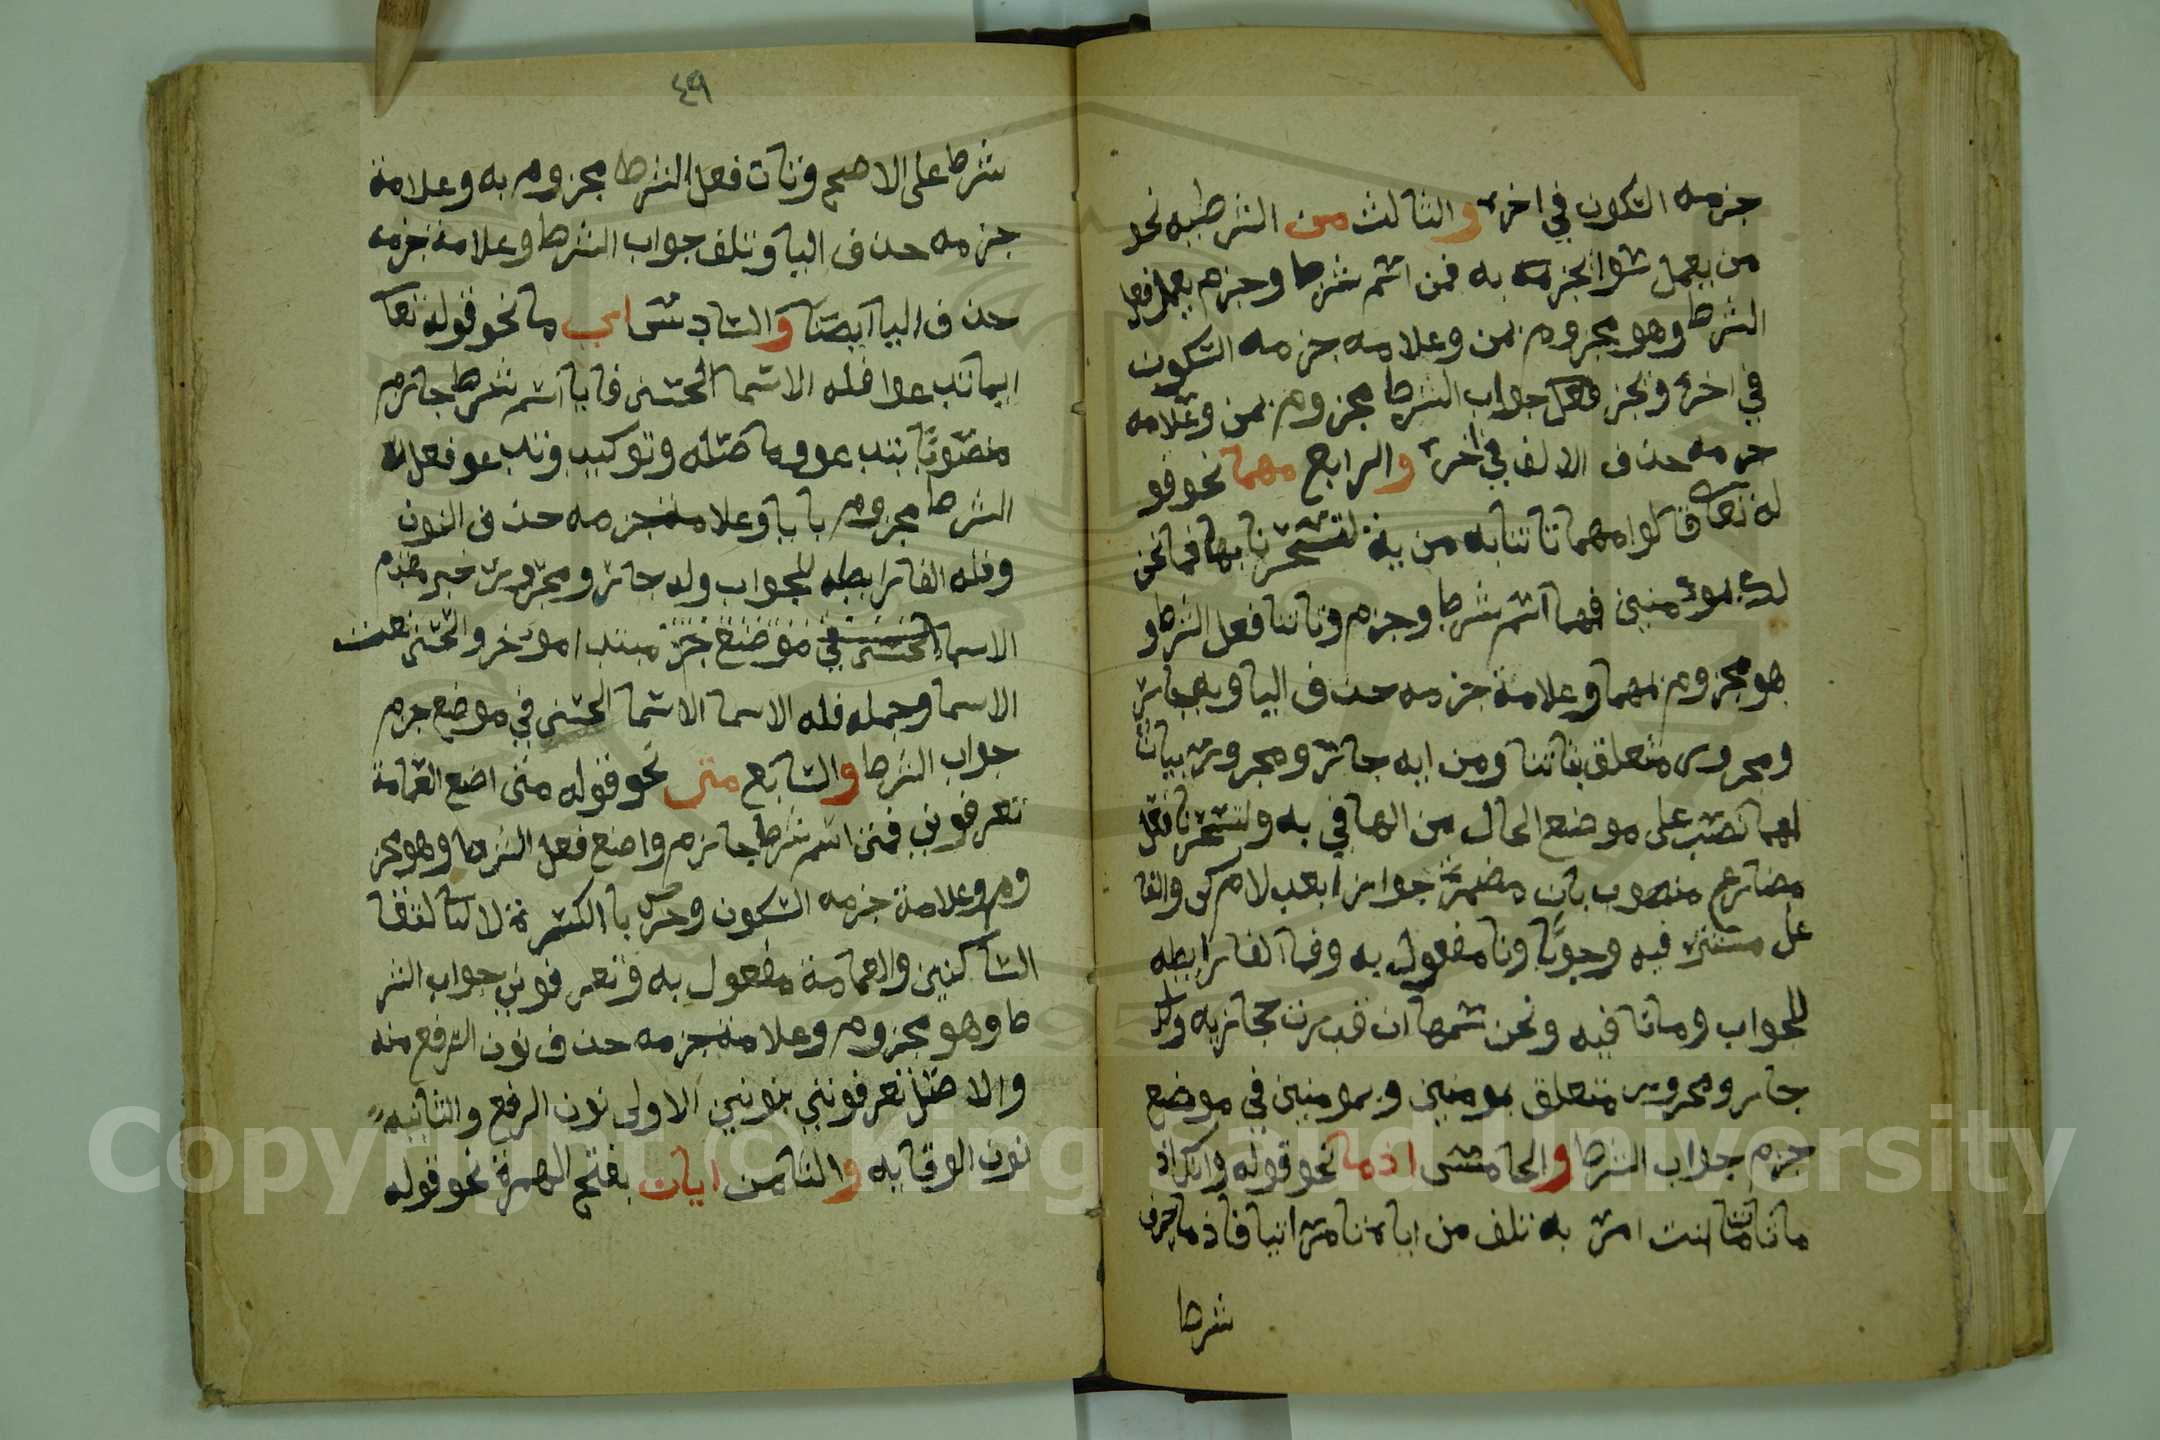 جزمه السكون في اخره والثالث من الشرطيه نحو
من يعمل سوا يجزيه به فمن اسم شرط وجزم يعمل فعل
الشرط وهو مجزوم بمن وعلامه جزمه السكون
في اخره ويجز فعل جواب الشرط مجزوم بمن وعلامه
جزمه حذف الالف في اخره والرابع مهما نحو قو
له تعا قالوا مهما تاتنا به من ية لتسحرنا بها فما نحن
لك بمومنين فمهما اسم شرط وجزم وتاتنا فعل الشرط و
هو مجزوم بمهما وعلامة جزمه حذف اليا وبه جار
ومجرور متعلق بتاتنا ومن ايه جار ومجرور بيان
لمهما نصب على موضع الحال من الها في به ولتسحرنا فعل
مضارع منصوب بان مضمرة جوازا بعد لام كي والفا
عل مستتر فيه وجوبا ونا مفعول به وفما الفا رابطه
للجواب وما نا فيه ونحن اسمها ان قدرت حجازيه ولك
جار ومجرور متعلق بمومنين وبمومنين في موضع
جزم جواب الشرط والخامس اذما نحو قوله وانك اذ
ما تات ما انت امر به تلف من اياه تامر اتيا فاذ ما حرف
شرط
٤٩
شرط على الاصح وتات فعل الشرط مجزوم به وعلامة
جزمه حذف اليا وتلف جواب الشرط وعلامة جزمه
حذف اليا ايضا والسادس اي ما نحو قوله تعا
ايما تدعوا فله الاسما الحسنى فايا اسم شرط جازم
منصوبا بتدعوو ما صله وتوكيد وتدعو فعل
الشرط مجزوم بايا وعلامة جزمه حذف النون
وفله الفا رابطه للجواب وله جار ومجرور خبر مقدم
الاسما الحسنى في موضع جز مبتدا موخر والحسنى نعت
الاسما وجمله فله الاسما الاسما الحسنى في موضع جزم
جواب الشرط والسابع متى نحو قوله متى اضع العمامة
تعرفوني فمتى اسم شرط جازم واضع فعل الشرط وهو مجز
وم وعلامة جزمه السكون وحرك با الكسرة لالتا لتقا
الساكنين والعمامة مفعول به وتعرفوني جواب الشر
ط وهو مجزوم وعلامة جزمه حذف نون الرفع منه
والاصل تعرفونني بنونين الاولى نون الرفع والثانيه
نون الوقايه والثامن ايان بفتح الهمزة نحو قوله
Copyright © King Saud University